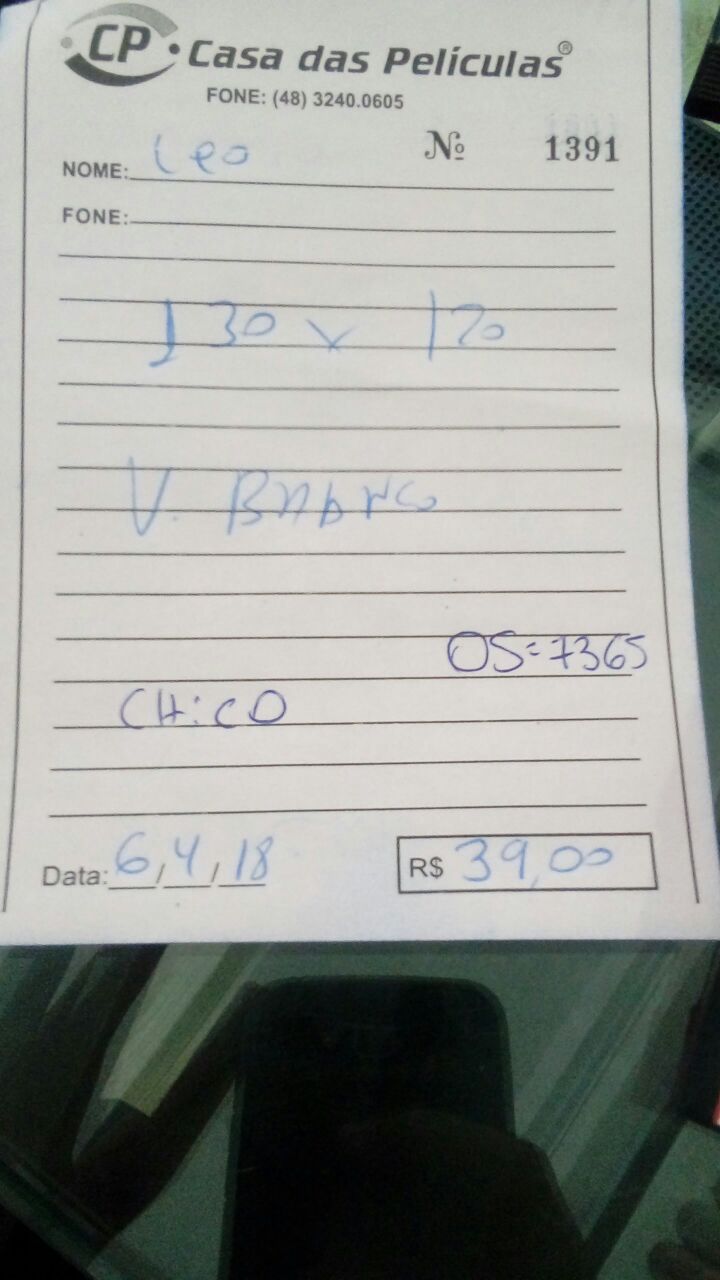 CP • Casa das Películas®
FONE: (48) 3240.0605
Nº 1391
NOME: Leo
FONE:
130 x 120
V. Branco
OS=7365
CHiCO
Data: 6/4/18 R$ 39,00